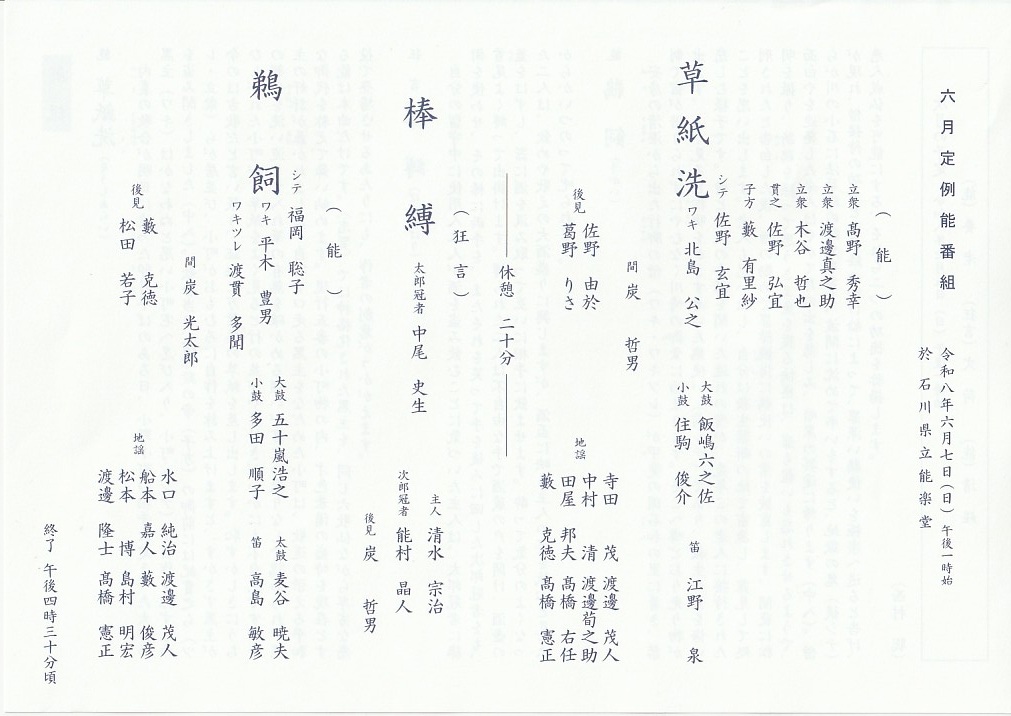 六月定例能番組
令和八年六月七日（日）午後一時始
於 石川県立能楽堂
（能）
立衆 髙野 秀幸
立衆 渡邊真之助
立衆 木谷 哲也
貫之 佐野 弘宜
子方 藪 有里紗
シテ 佐野 玄宜
草紙洗
ワキ 北島 公之
大鼓 飯嶋六之佐
小鼓 住駒 俊介
笛 江野 泉
間 炭 哲男
後見 佐野 由於
葛野 りさ
地謡
寺田 茂 渡邊 茂人
中村 清 渡邊荀之助
田屋 邦夫 髙橋 右任
藪 克徳 髙橋 憲正
休憩 二十分
（狂言）
棒縛
太郎冠者 中尾 史生
主人 清水 宗治
次郎冠者 能村 晶人
後見 炭 哲男
（能）
シテ 福岡 聡子
鵜飼
ワキ 平木 豊男
ワキツレ 渡貫 多聞
大鼓 五十嵐浩之
小鼓 多田 順子
太鼓 麦谷 暁夫
笛 高島 敏彦
間 炭 光太郎
後見 藪 克徳
松田 若子
地謡
水口 純治 渡邊 茂人
船本 嘉人 藪 俊彦
松本 博 島村 明宏
渡邊 隆士 髙橋 憲正
終了 午後四時三十分頃